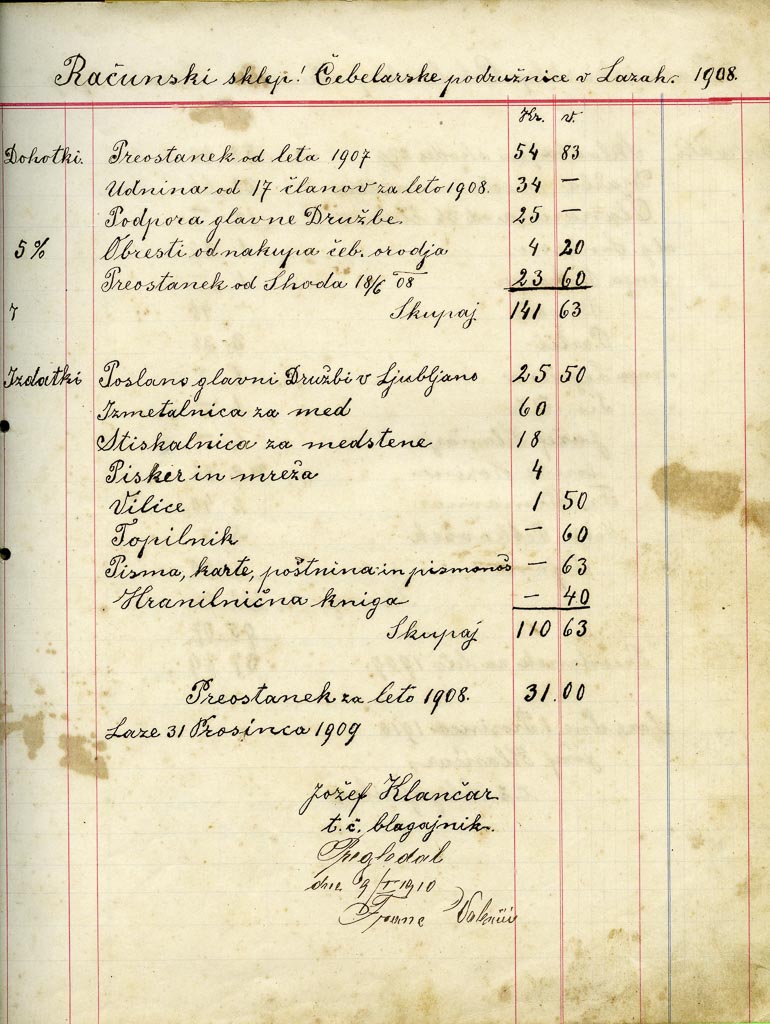 Računski sklep! Čebelarske podružnice v Lazah. 1908.
Kr. v.
Dohotki. Preostanek od leta 1907 54 83
Udnina od 17 članov za leto 1908. 34 —
Podpora glavne Družbe. 25 —
5 % Obresti od nakupa čeb. orodja 4 20
Preostanek od Shoda 18/6 08 23 60
7 Skupaj 141 63
Izdatki Poslano glavni Družbi v Ljubljano 25 50
Izmetalnica za med 60
Stiskalnica za medstene 18
Pisker in mreža 4
Vilice 1 50
Topilnik — 60
Pisma, karte, poštnina in pismonoš — 63
Hranilnična kniga — 40
Skupaj 110 63
Preostanek za leto 1908. 31.00
Laze 31 Prosinca 1909
Jožef Klančar
t. č. blagajnik.
Pregledal
dne 9/I 1910
Franc